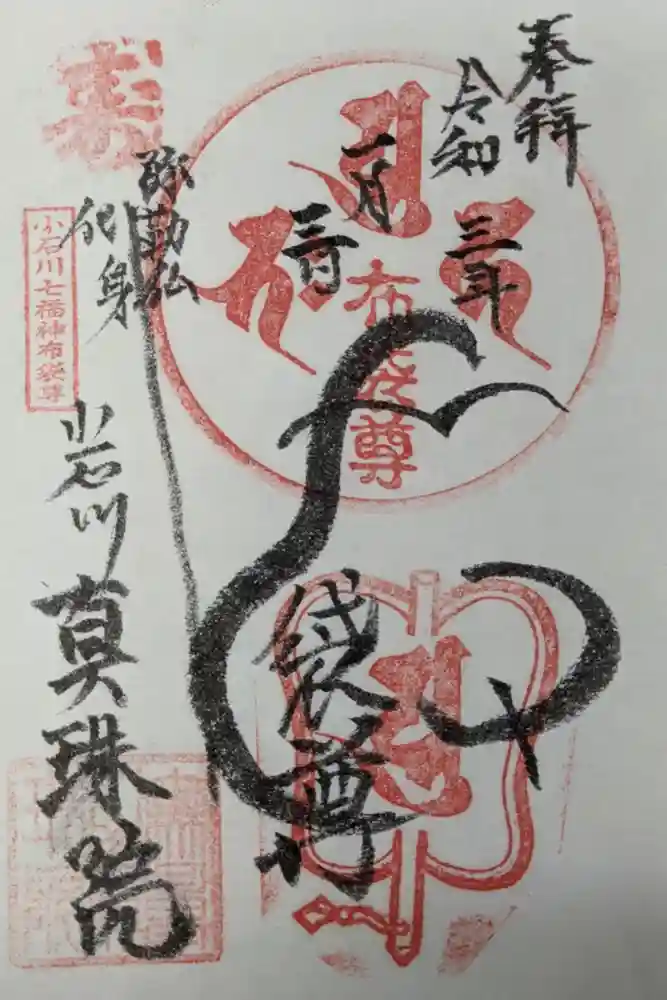 奉拝
令和三年
一月三日
布袋尊
袋尊
弥勒仏
化身
小石川七福神布袋尊
小石川
真珠院